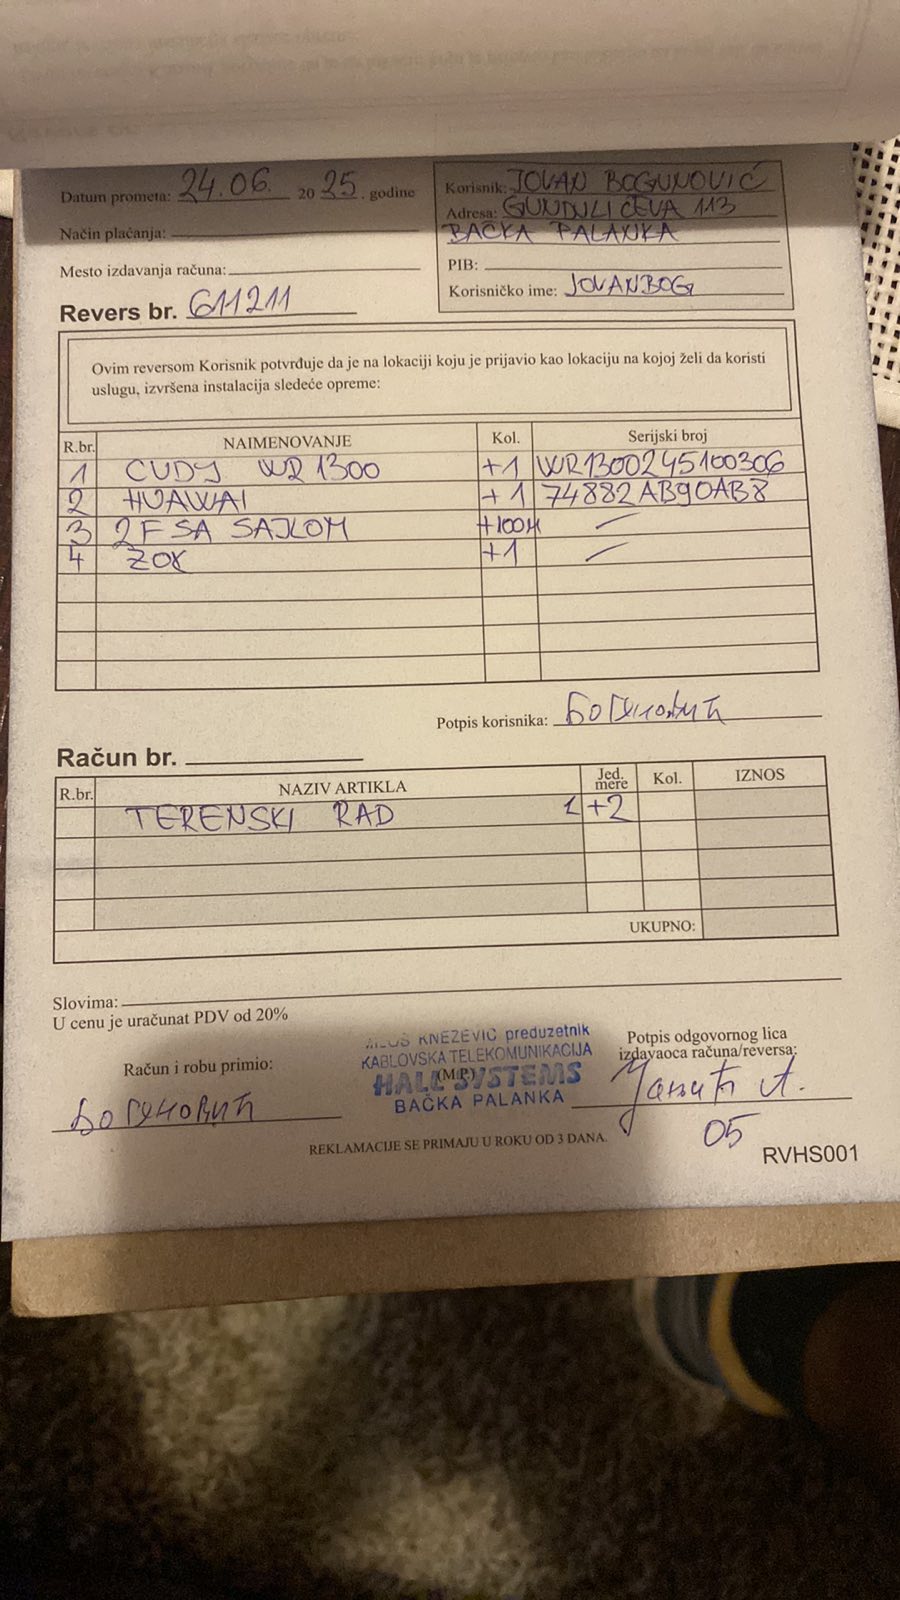 Datum prometa: 24.06. 2025. godine
Način plaćanja:
Mesto izdavanja računa:
Revers br. 611211
Korisnik: JOVAN BOGUNOVIĆ
Adresa: GUNDULIĆEVA 113
BAČKA PALANKA
PIB:
Korisničko ime: JOVANBOG
Ovim reversom Korisnik potvrđuje da je na lokaciji koju je prijavio kao lokaciju na kojoj želi da koristi
uslugu, izvršena instalacija sledeće opreme:
R.br. NAIMENOVANJE Kol. Serijski broj
1 CUDY WR1300 +1 WR1300245100306
2 HUAWAI +1 74882AB90AB8
3 2F SA SAJLOM +100M —
4 ZOK +1 —
Potpis korisnika: Богуновић
Račun br.
R.br. NAZIV ARTIKLA Jed. mere Kol. IZNOS
TERENSKI RAD 1 +2
UKUPNO:
Slovima:
U cenu je uračunat PDV od 20%
Račun i robu primio:
Богуновић
KNEZEVIC preduzetnik
KABLOVSKA TELEKOMUNIKACIJA
(M.P.)
HALL SYSTEMS
BAČKA PALANKA
Potpis odgovornog lica
izdavaoca računa/reversa:
05
REKLAMACIJE SE PRIMAJU U ROKU OD 3 DANA.
RVHS001